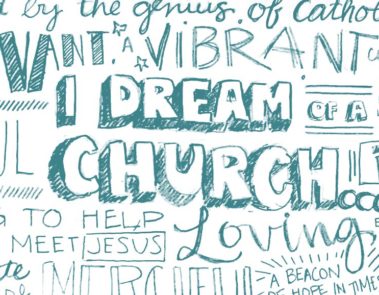 by the genius of Catho
WANT A VIBRANT
I DREAM OF A
CHURCH...
TO HELP Loving
MEET JESUS
MERCIFUL A BEACON
OF HOPE IN TIME